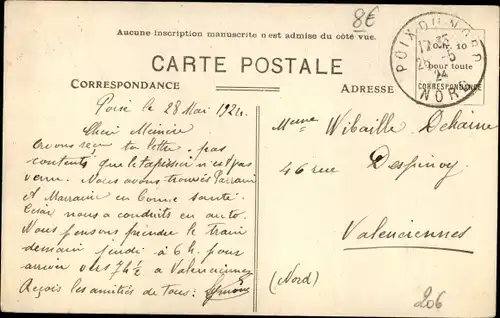 8€
Aucune inscription manuscrite n'est admise du côté vue.
CARTE POSTALE
CORRESPONDANCE
ADRESSE
POIX DU NORD
NORD
10
pour toute
CORRESPONDANCE
le 28 Mai 1924
Avons reçu ta lettre. pas
contents que le tapissier n'est pas
venu. Nous avons trouvés Parrain
& Marraine en bonne santé.
nous a conduits en auto.
Nous pensons prendre le train
demain jeudi à 6h. pour
arriver vers 7h ½ à Valenciennes
Reçois les amitiés de tous.
Mme Wibaille Dehaine
46 rue Despinoy
Valenciennes
(Nord)
206